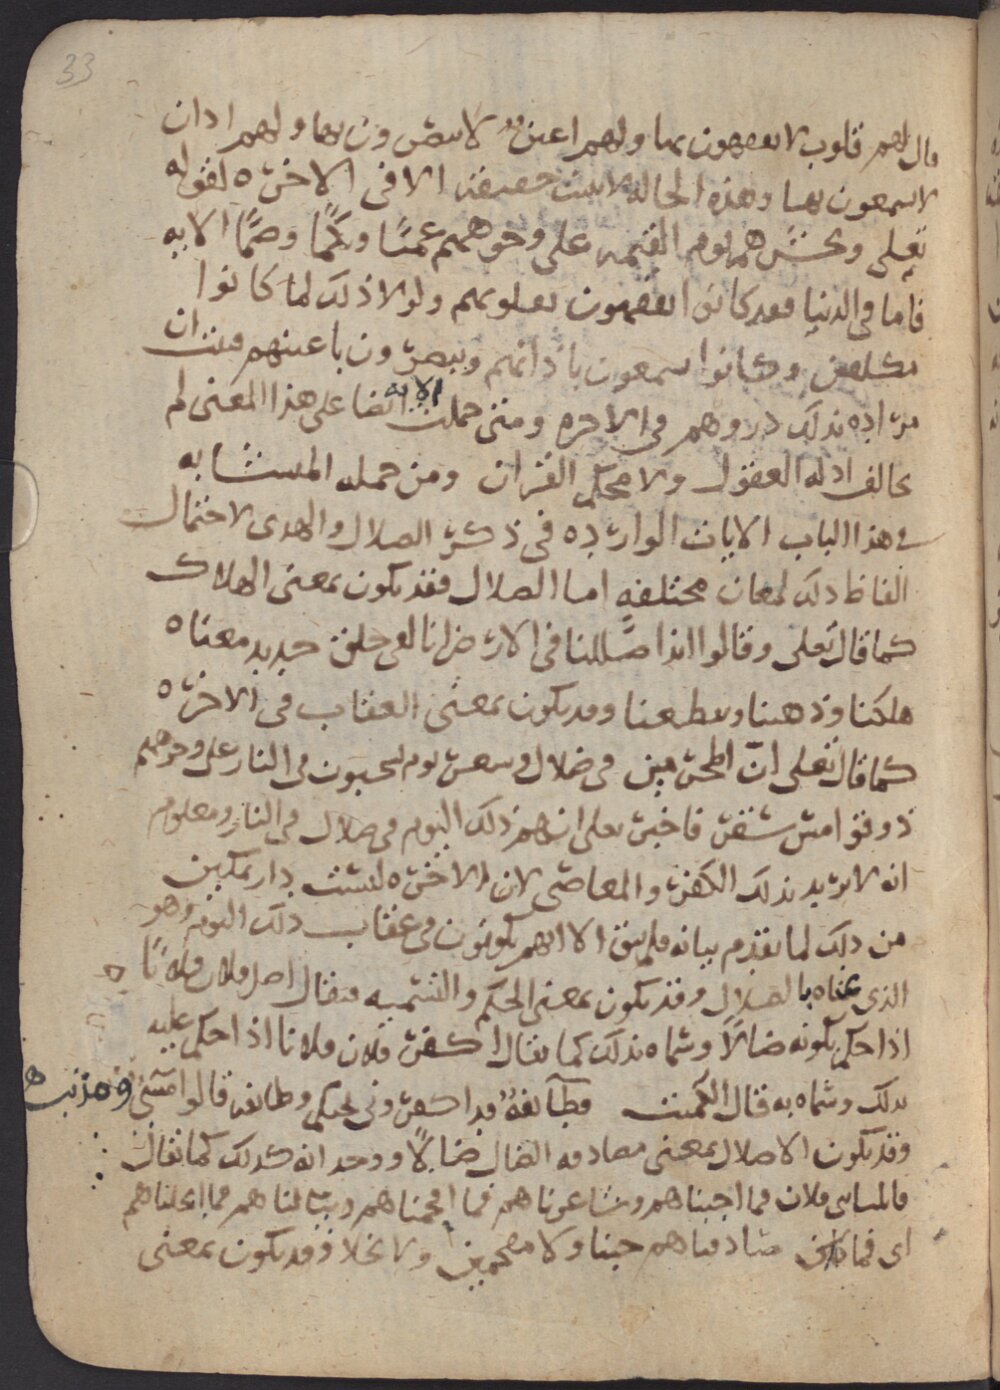 33
قال لهم قلوب لا يفقهون بها ولهم اعين لا يبصرون بها ولهم اذان
لا يسمعون بها وهذه الحاله لا تثبت حقيقة الا في الاخره لقوله
تعلى ونحشرهم يوم القيمه على وجوههم عميًا وبكمًا وصمًا الايه
فاما في الدنيا فقد كانوا يفقهون بقلوبهم ولولا ذلك لما كانوا
مكلفين وكانوا يسمعون باذانهم ويبصرون باعينهم فثبت ان
مراده بذلك دروهم في الاخره ومتى حملت الايه ايضا على هذا المعنى لم
يخالف ادله العقول ولا محكم القران ومن حمله المتشابه
في هذا الباب الايات الوارده في ذكر الضلال والهدى لاحتمال
الفاظ ذلك لمعان مختلفه اما الضلال فقد يكون بمعنى الهلاك
كما قال تعلى وقالوا ائذا ضللنا في الارض انا لفي خلق جديد معناه
هلكنا وذهبنا وتقطعنا وقد يكون بمعنى العقاب في الاخره
كما قال تعلى ان المجرمين في ضلال وسعر يوم يسحبون في النار على وجوههم
ذوقوا مس سقر فاخبر تعلى انهم ذلك اليوم في ضلال في النار ومعلوم
انه لا يريد بذلك الكفر والمعاصي لان الاخره ليست بدار تمكين
من ذلك لما تقدم بيانه فلم يبق الا انهم يكونون في عقاب ذلك اليوم وهو
الذي عناه بالضلال وقد يكون بمعنى الحكم والتسميه فيقال اضل فلان فلانًا
اذا حكم بكونه ضالًا وسماه بذلك كما يقال اكفر فلان فلانا اذا حكم عليه
بذلك وسماه به قال الكميت فطائفةٌ قد اكفروني بحبكم وطائفه قالوا مسيء ومذنب
وقد يكون الاضلال بمعنى مصادفه الضال ضالًا ووجدانه كذلك كما يقال
قاتلنا بني فلان فما اجبناهم وشاعرناهم فما افحمناهم وسالناهم فما ابخلناهم
اي فما صادفناهم جبنا ولا مفحمين ولا بخلا وقد يكون بمعنى